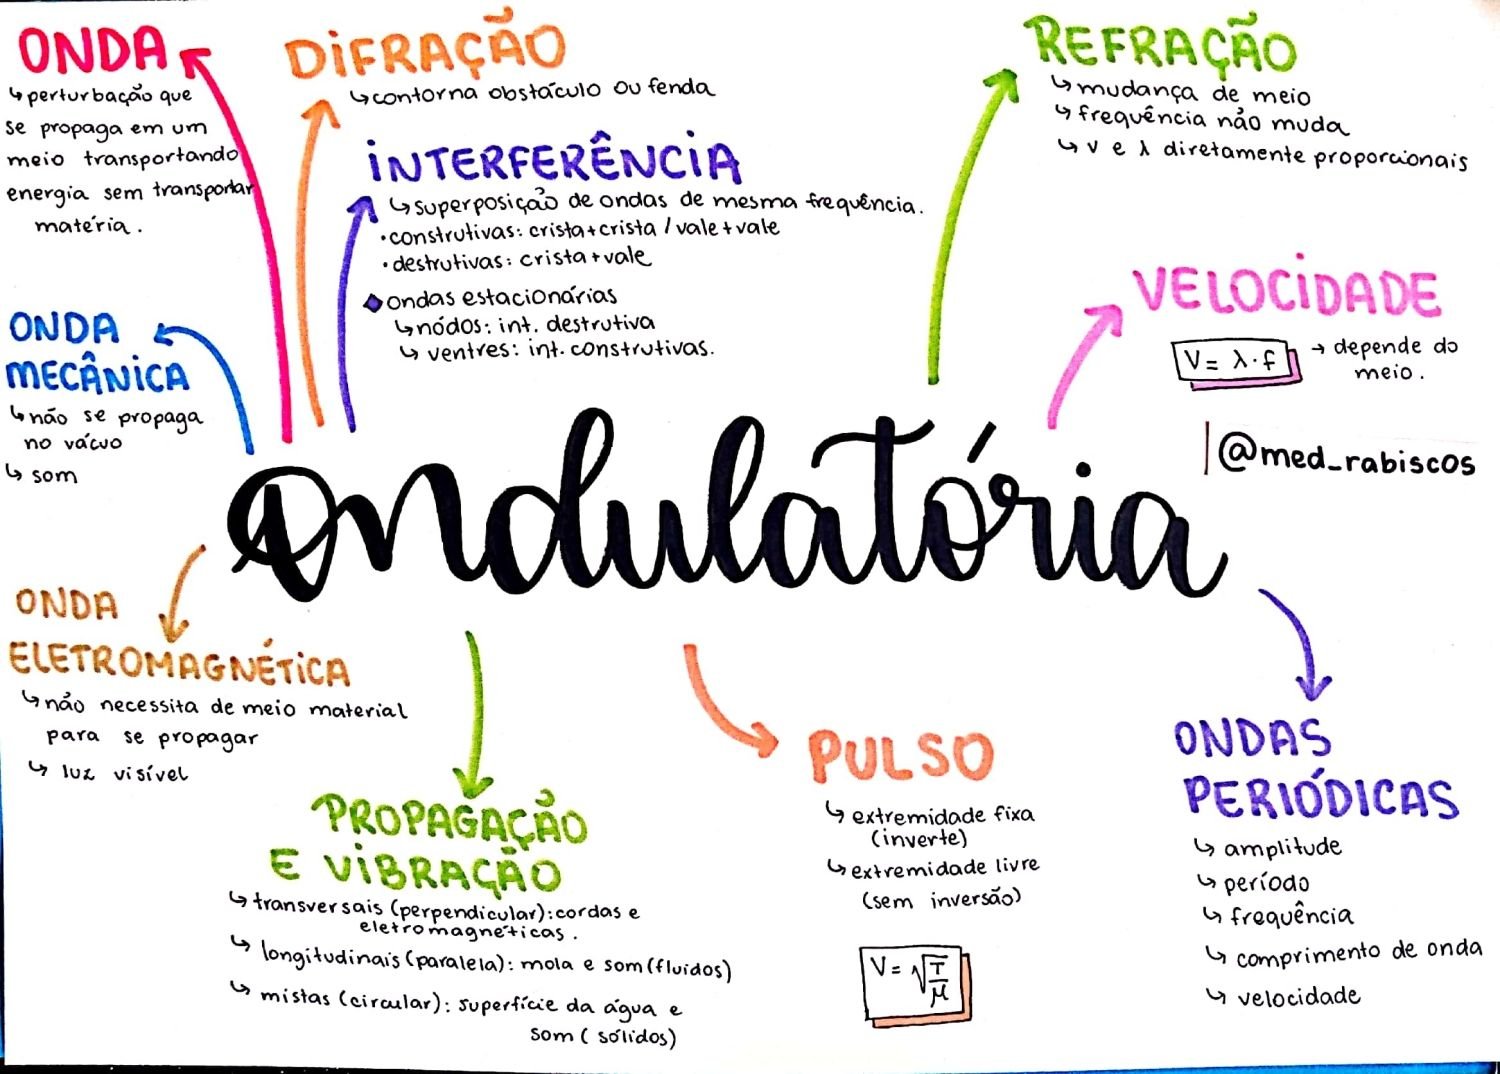 ONDA
↳ perturbação que
se propaga em um
meio transportando
energia sem transportar
matéria.
DIFRAÇÃO
↳ contorna obstáculo ou fenda
INTERFERÊNCIA
↳ superposição de ondas de mesma frequência.
• construtivas: crista+crista / vale+vale
• destrutivas: crista+vale
◆ ondas estacionárias
↳ nódos: int. destrutiva
↳ ventres: int. construtivas.
REFRAÇÃO
↳ mudança de meio
↳ frequência não muda
↳ v e λ diretamente proporcionais
VELOCIDADE
V = λ · f → depende do
meio.
@med_rabiscos
ONDA
MECÂNICA
↳ não se propaga
no vácuo
↳ som
Ondulatória
ONDA
ELETROMAGNÉTICA
↳ não necessita de meio material
para se propagar
↳ luz visível
PROPAGAÇÃO
E VIBRAÇÃO
↳ transversais (perpendicular): cordas e
eletromagnéticas.
↳ longitudinais (paralela): mola e som (fluidos)
↳ mistas (circular): superfície da água e
som (sólidos)
PULSO
↳ extremidade fixa
(inverte)
↳ extremidade livre
(sem inversão)
V = √T/μ
ONDAS
PERIÓDICAS
↳ amplitude
↳ período
↳ frequência
↳ comprimento de onda
↳ velocidade